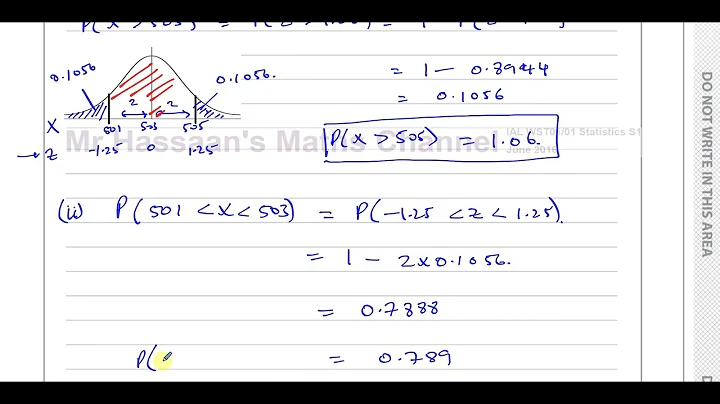 = 1 - 0.8944
= 0.1056
0.1056 0.1056.
2 2
X 501 503 505
→ Z -1.25 0 1.25
Mr Hassaan's Maths Channel
IAL WST01/01 Statistics S1
June 2016
P(X > 505) = 1.06.
(ii) P(501 < X < 503) = P(-1.25 < Z < 1.25).
= 1 - 2x0.1056.
= 0.7888
P( = 0.789
DO NOT WRITE IN THIS AREA